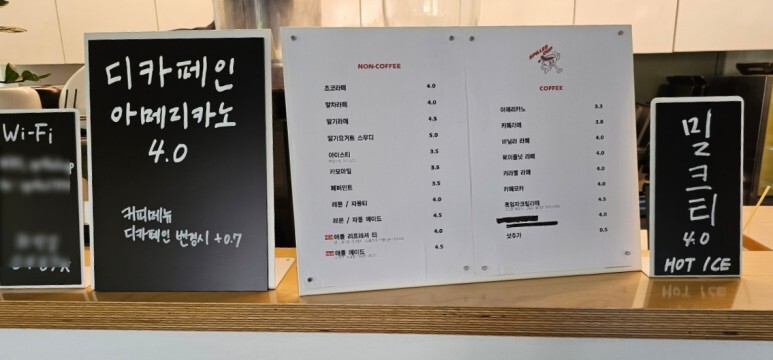 Wi-Fi
디카페인
아메리카노
4.0
커피메뉴
디카페인 변경시 +0.7
NON-COFFEE
초코라떼 4.0
말차라떼 4.0
딸기라떼 4.5
딸기요거트 스무디 5.0
아이스티 3.5
카모마일 3.5
페퍼민트 3.5
레몬 / 자몽티 4.0
레몬 / 자몽 에이드 4.5
애플 리프레셔 티 4.0
애플 에이드 4.5
COFFEE
아메리카노 3.3
카페라떼 3.8
바닐라 라떼 4.0
헤이즐넛 라떼 4.0
카라멜 라떼 4.0
카페모카 4.0
4.5
4.0
샷추가 0.5
밀크티
4.0
HOT ICE